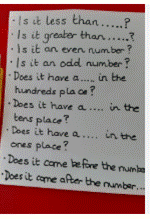 · Is it less than......?
· Is it greater than......?
· Is it an even number?
· Is it an odd number?
· Does it have a.... in the
hundreds place?
· Does it have a .... in the
tens place?
· Does it have a .... in the
ones place?
· Does it come before the number
· Does it come after the number...